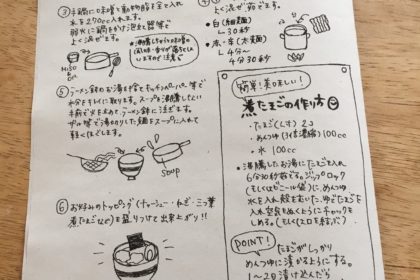 ③手鍋に味噌と動物脂を全て入れ
水を270cc入れます。
弱火に鍋をかけ泡立て器等で
よく混ぜます。
※沸騰しちゃうと味噌の
風味・香りが落ちてしまい
ますが注意
MISO
& oil
よく混ぜ茹でます。
・白(細麺)
30秒
・赤・辛(太麺)
4分〜
4分30秒
⑤ラーメン鉢のお湯を捨てキッチンペーパー等で
水分をキレイに取ります。スープを沸騰したい
手前で火を止め、ラーメン鉢に注ぎます。
ザル等で湯切りした麺をスープに入れて
軽くほぐします。
soup
⑥お好みのトッピング(チャーシュー・ねぎ・三つ葉
煮たまごなど)を盛りつけて出来上がり!!
簡単!美味しい!
煮たまごの作り方
・たまご(Lサイズ) 2コ
・めんつゆ(3倍濃縮) 100cc
・水 100cc
・沸騰したお湯にたまごを入れ
6分30秒茹でる。ジップロック
(もしくはビニール袋)に、めんつゆ
水を入れ殻をむいた、ゆでたまごを
入れ空気をぬくようにチャックを
しめる。(もしくは口を結ぶ)
POINT!
たまごがしっかり
めんつゆに漬かるようにする。
1〜2日漬け込んだら